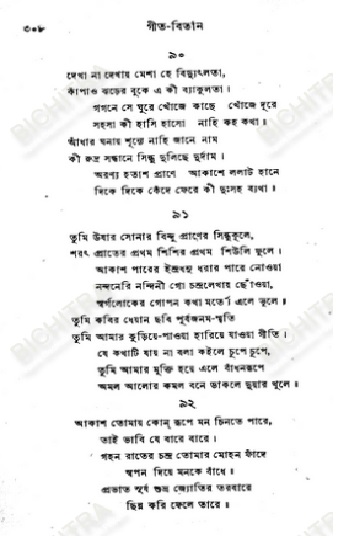 ৩০৮
গীত-বিতান
৯০
দেখা না দেখায় মেশা হে বিদ্যুৎলতা,
কাঁপাও ঝড়ের বুকে এ কী ব্যাকুলতা।
গগনে সে ঘুরে খোঁজে কাছে খোঁজে দূরে
সহসা কী হাসি হাসো নাহি কহ কথা।
আঁধার ঘনায় শূন্যে নাহি জানে নাম
কী রুদ্র সন্ধানে সিন্ধু দুলিছে দুর্দাম।
অরণ্য হতাশ প্রাণে আকাশে ললাট হানে
দিকে দিকে কেঁদে ফেরে কী দুঃসহ ব্যথা।
৯১
তুমি উষার সোনার বিন্দু প্রাণের সিন্ধুকূলে,
শরৎ প্রাতের প্রথম শিশির প্রথম শিউলি ফুলে।
আকাশ পারের ইন্দ্রধনু ধরার পারে নোওয়া
নন্দনেরি নন্দিনী গো চন্দ্রলেখায় ছোঁওয়া,
স্বর্গলোকের গোপন কথা মর্ত্যে এলে ভুলে।
তুমি কবির ধেয়ান ছবি পূর্বজনম-স্মৃতি
তুমি আমার কুড়িয়ে-পাওয়া হারিয়ে যাওয়া গীতি।
যে কথাটি যায় না বলা কইলে চুপে চুপে,
তুমি আমার মুক্তি হয়ে এলে বাঁধনরূপে
অমল আলোর কমল বনে ডাকলে দুয়ার খুলে।
৯২
আকাশ তোমায় কোন্ রূপে মন চিনতে পারে,
তাই ভাবি যে বারে বারে।
গহন রাতের চন্দ্র তোমার মোহন ফাঁদে
স্বপন দিয়ে মনকে বাঁধে।
প্রভাত সূর্য শুভ্র জ্যোতির তরবারে
ছিন্ন করি ফেলে তারে।
BICHITRA